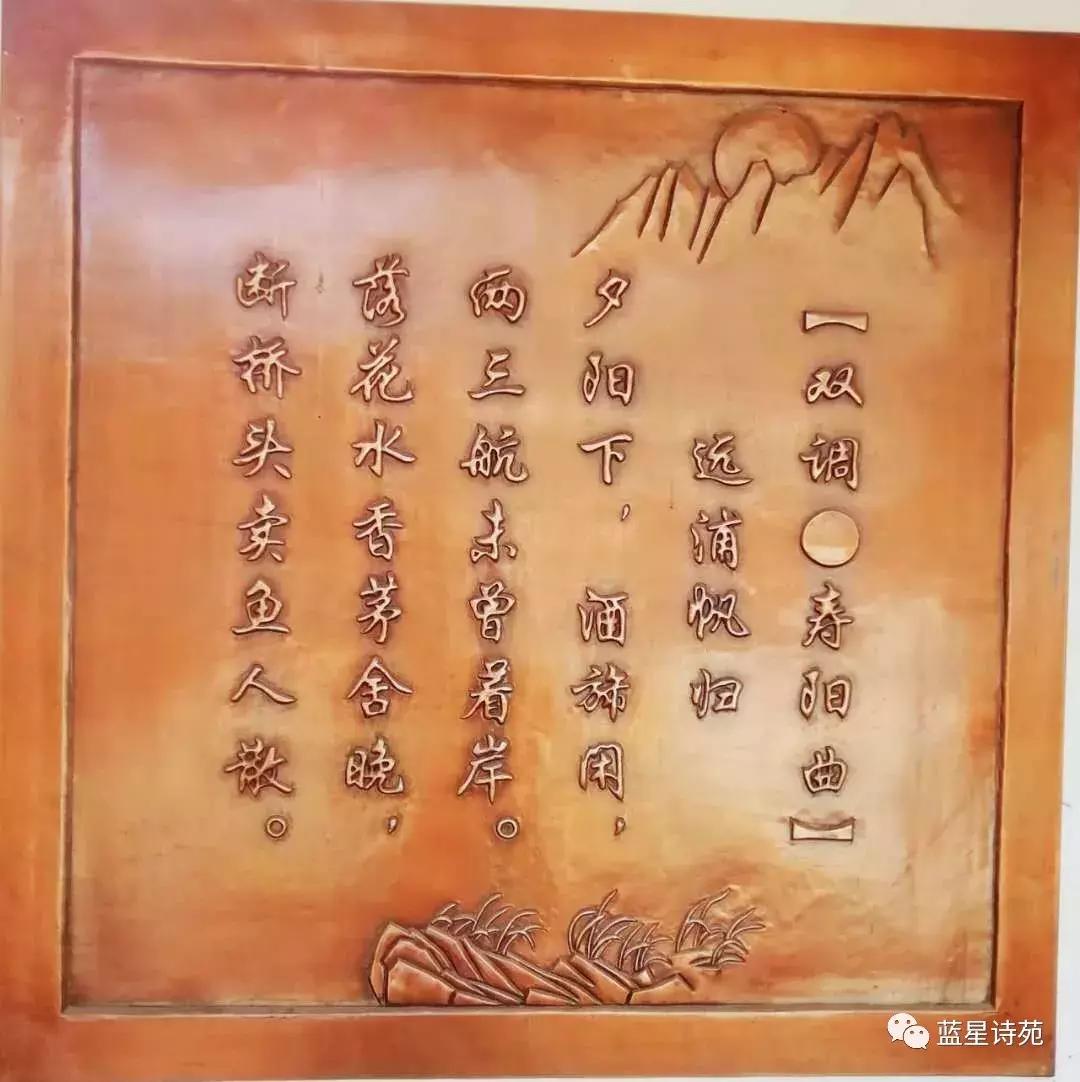 【双调●寿阳曲】
远浦帆归
夕阳下，酒旆闲，
两三航未曾着岸。
落花水香茅舍晚，
断桥头卖鱼人散。
蓝星诗苑